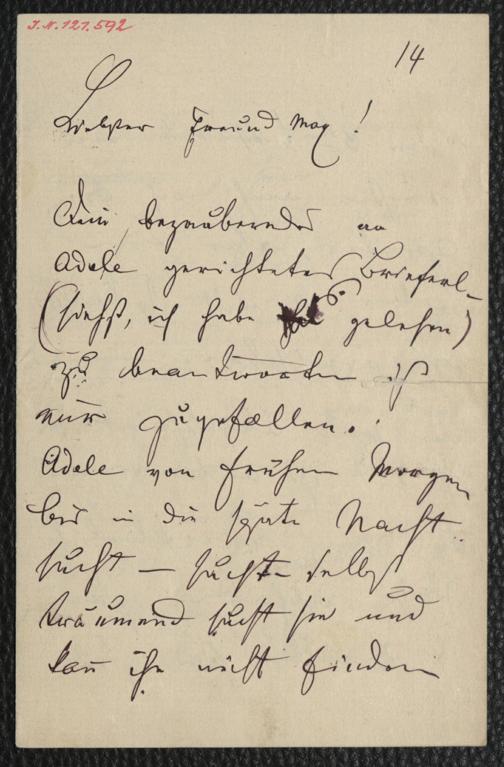 I.N. 121.592
14
Liebster Freund Max!
Dein bezauberndes an
Adele gerichtetes Brieferl
(siehst, ich habe es gelesen)
zu beantworten ist
mir zugefallen.
Adele von frühen Morgen
bis in die späte Nacht
sucht – sucht selbst
träumend sucht sie und
kan ihn nicht finden